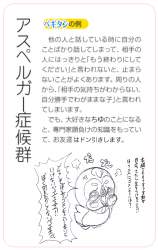 ペキタンの例
アスペルガー症候群
他の人と話している時に自分の
ことばかり話してしまって、相手の
人にはっきりと「もう終わりにして
ください」と言われないと、止まら
ないことがよくあります。周りの人
から、「相手の気持ちがわからない、
自分勝手でわがままな子」と言われ
てしまいます。
でも、大好きなちゆのことになる
と、専門家顔負けの知識をもってい
て、お友達はドン引きします。